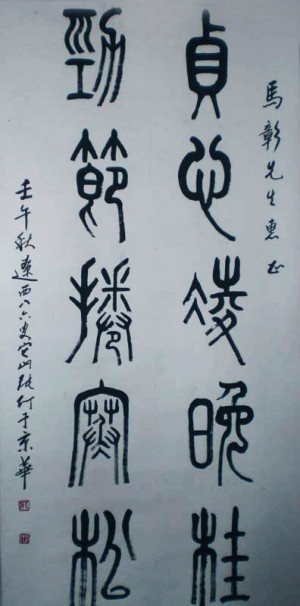 馬彰先生惠正
貞心凌晚桂
勁節掩寒松
壬午秋遼西八六叟宝山孫行于京華